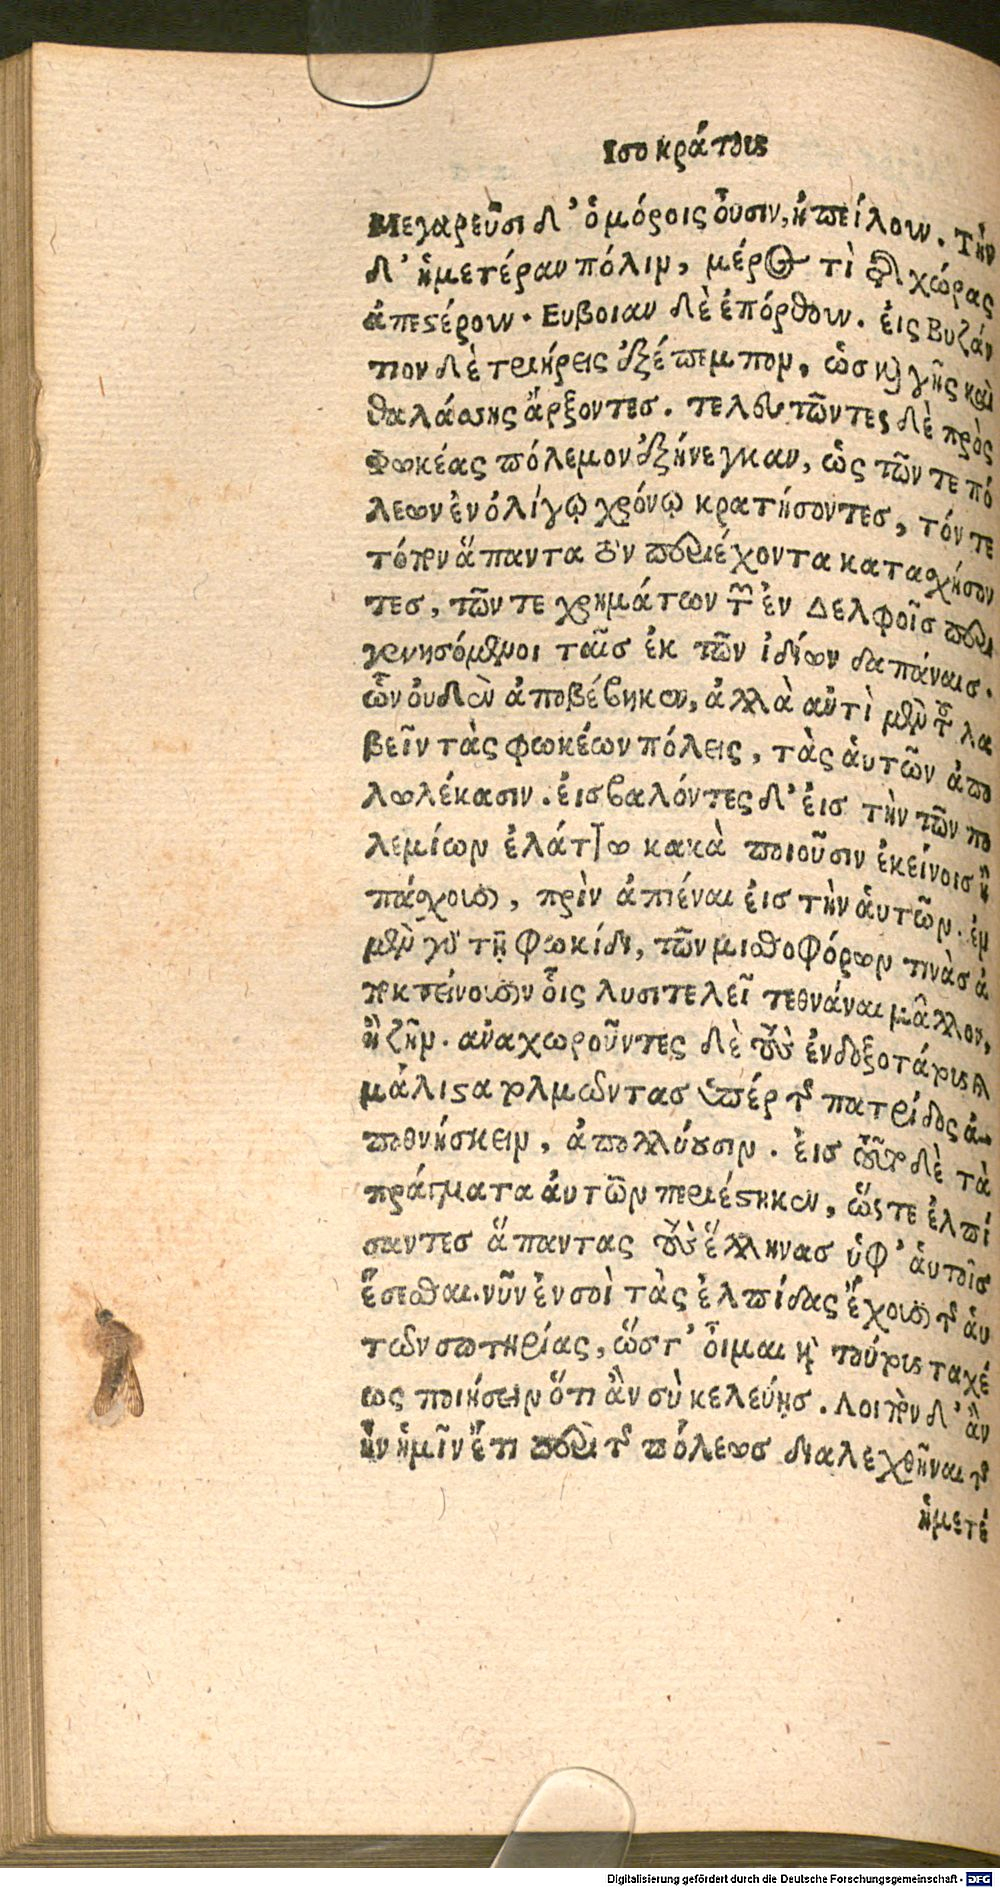 Ισοκράτους
Μεγαρεῦσι δ' ὁμόροις οὖσιν, ἠπείλουν. Τὴν
δ' ἡμετέραν πόλιν, μέρος τὶ τῆς χώρας
ἀπεστέρουν. Ευβοιαν δὲ ἐπόρθουν. ἐις Βυζάν
τιον δὲ τριήρεις ἐξέπεμπον, ὡσ καὶ γῆς καὶ
θαλάσσης ἄρξοντεσ. τελευτῶντες δὲ πρὸς
Φωκέας πόλεμον ἐξήνεγκαν, ὡς τῶν τε πό
λεων ἐν ὀλίγῳ χρόνῳ κρατήσοντεσ, τόν τε
τόπον ἅπαντα τὸν περιέχοντα κατασχήσον
τεσ, τῶν τε χρημάτων τῶν ἐν Δελφοῖσ περι
γενησόμενοι ταῖσ ἐκ τῶν ἰδίων δαπάναισ.
ὧν ὀυδὲν ἀποβέβηκεν, ἀλλὰ αὐτὶ μὲν τοῦ λα
βεῖν τὰς φωκέων πόλεις, τὰς ἁυτῶν ἀπο
λωλέκασιν. ἐισβαλόντες δ' ἐισ τὴν τῶν πο
λεμίων ἐλάττω κακὰ ποιοῦσιν ἐκείνοισ ἢ
πάσχουσι, πρὶν ἀπιέναι ἐισ τὴν ἁυτῶν. ἐμ
μὲν γὰρ τῇ Φωκίδι, τῶν μισθοφόρων τινὰσ ἀ
ποκτείνουσιν οἷς λυσιτελεῖ τεθνάναι μᾶλλον,
ἢ ζῆν. αναχωροῦντες δὲ τοὺς ἐνδοξοτάτους καὶ
μάλιστα τολμῶντασ ὑπέρ τῆς πατρίδος ἀ-
ποθνήσκειν, ἀπολλύουσιν. ἐισ τοῦτο δὲ τὰ
πράγματα ἀυτῶν περιέστηκεν, ὥστε ἐλπί
σαντεσ ἅπαντας τοὺς ἕλληνασ ὑφ' ἁυτοῖσ
ἔσεσθαι. νῦν ἐν σοὶ τὰς ἐλπίδας ἔχουσι τῆς ἁυ
τῶν σωτηρίας, ὥστ' ὀῖμαι καὶ τούτους ταχέ
ως ποιήσειν ὅτι ἂν σὺ κελεύῃσ. Λοιπὸν δ' ἂν
ἦν ἡμῖν ἔτι περὶ τῆς πόλεωσ διαλεχθῆναι τῆς
ἡμετέ
Digitalisierung gefördert durch die Deutsche Forschungsgemeinschaft - DFG